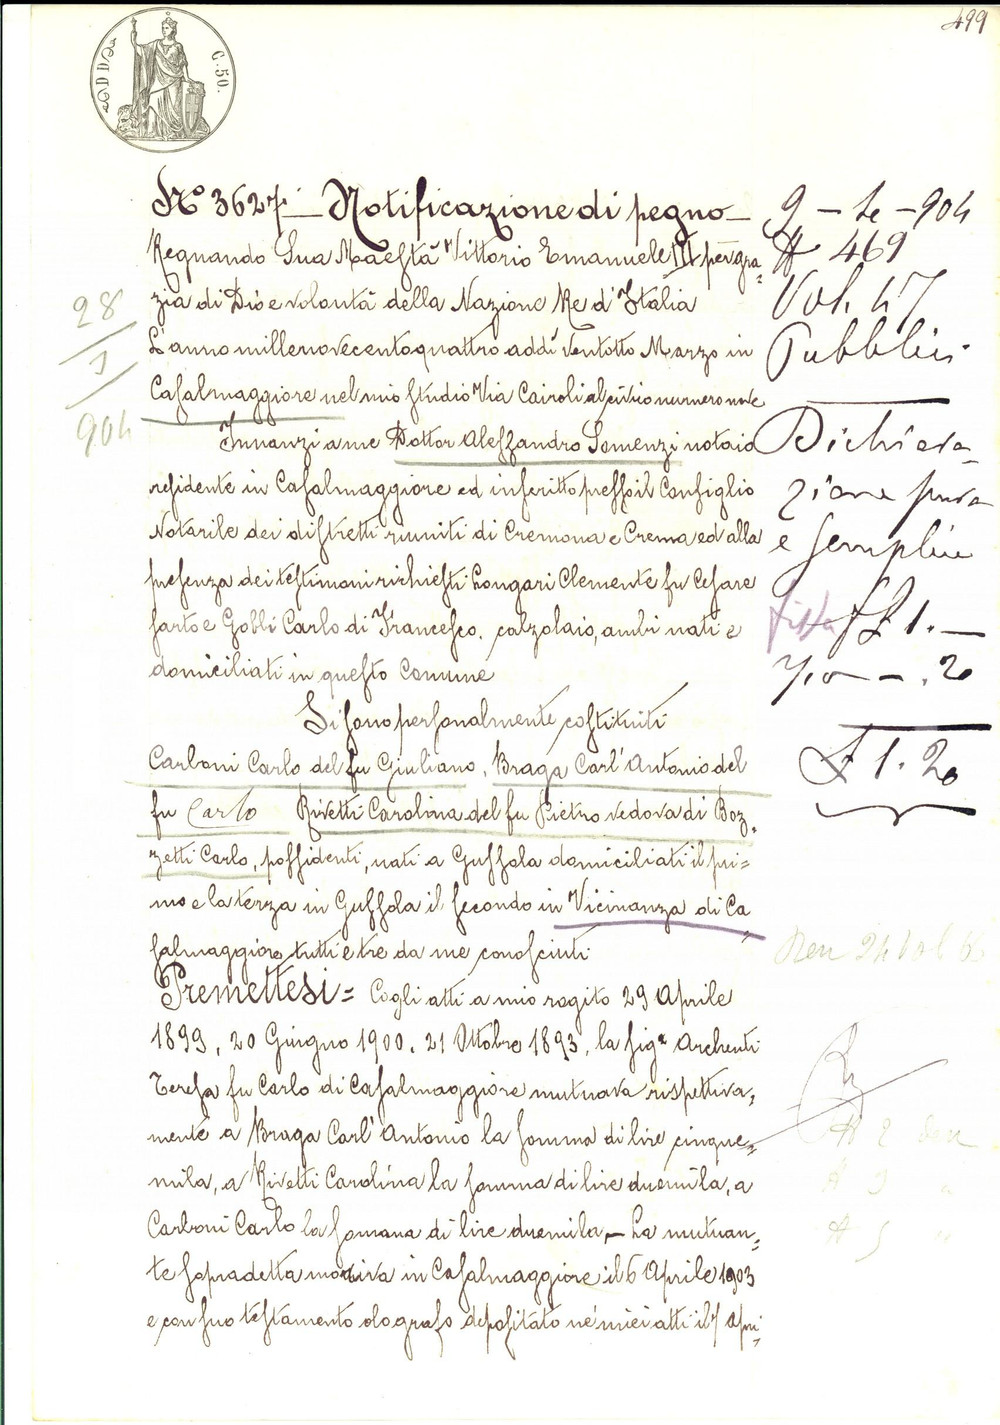 499
C. 50.
No 3627 — Notificazione di pegno —
Regnando Sua Maestà Vittorio Emanuele III per gra=
zia di Dio e volontà della Nazione Re d'Italia
L'anno millenovecentoquattro addì ventotto Marzo in
Casalmaggiore nel mio studio Via Cairoli al civico numero nove
Innanzi a me Dottor Alessandro Somenzi notaio
residente in Casalmaggiore ed inscritto presso il Consiglio
Notarile dei distretti riuniti di Cremona e Crema ed alla
presenza dei testimoni richiesti Longari Clemente fu Cesare
sarto e Gobbi Carlo di Francesco, calzolaio, ambi nati e
domiciliati in questo Comune
Si sono personalmente costituiti
Carboni Carlo del fu Giuliano, Braga Carl'Antonio del
fu Carlo Rivetti Carolina del fu Pietro vedova di Boz=
zetti Carlo, possidenti, nati a Gussola domiciliati il pri=
mo e la terza in Gussola il secondo in Vicinanza di Ca
salmaggiore tutti e tre da me conosciuti
Premettesi = Cogli atti a mio rogito 29 Aprile
1899, 20 Giugno 1900, 21 Ottobre 1893, la sigª Archenti
Teresa fu Carlo di Casalmaggiore mutuava rispettiva=
mente a Braga Carl'Antonio la somma di lire cinque=
mila, a Rivetti Carolina la somma di lire duemila, a
Carboni Carlo la somma di lire duemila — La mutuan=
te sopradetta moriva in Casalmaggiore il 6 Aprile 1903
e con suo testamento olografo depositato ne' miei atti il 7 Apri=
28
3
904
9 - 4 - 904
N 469
Vol. 47
Pubblici
Dichiara=
zione pura
e semplice
fissa £ 1. —
— . 20
£ 1. 20